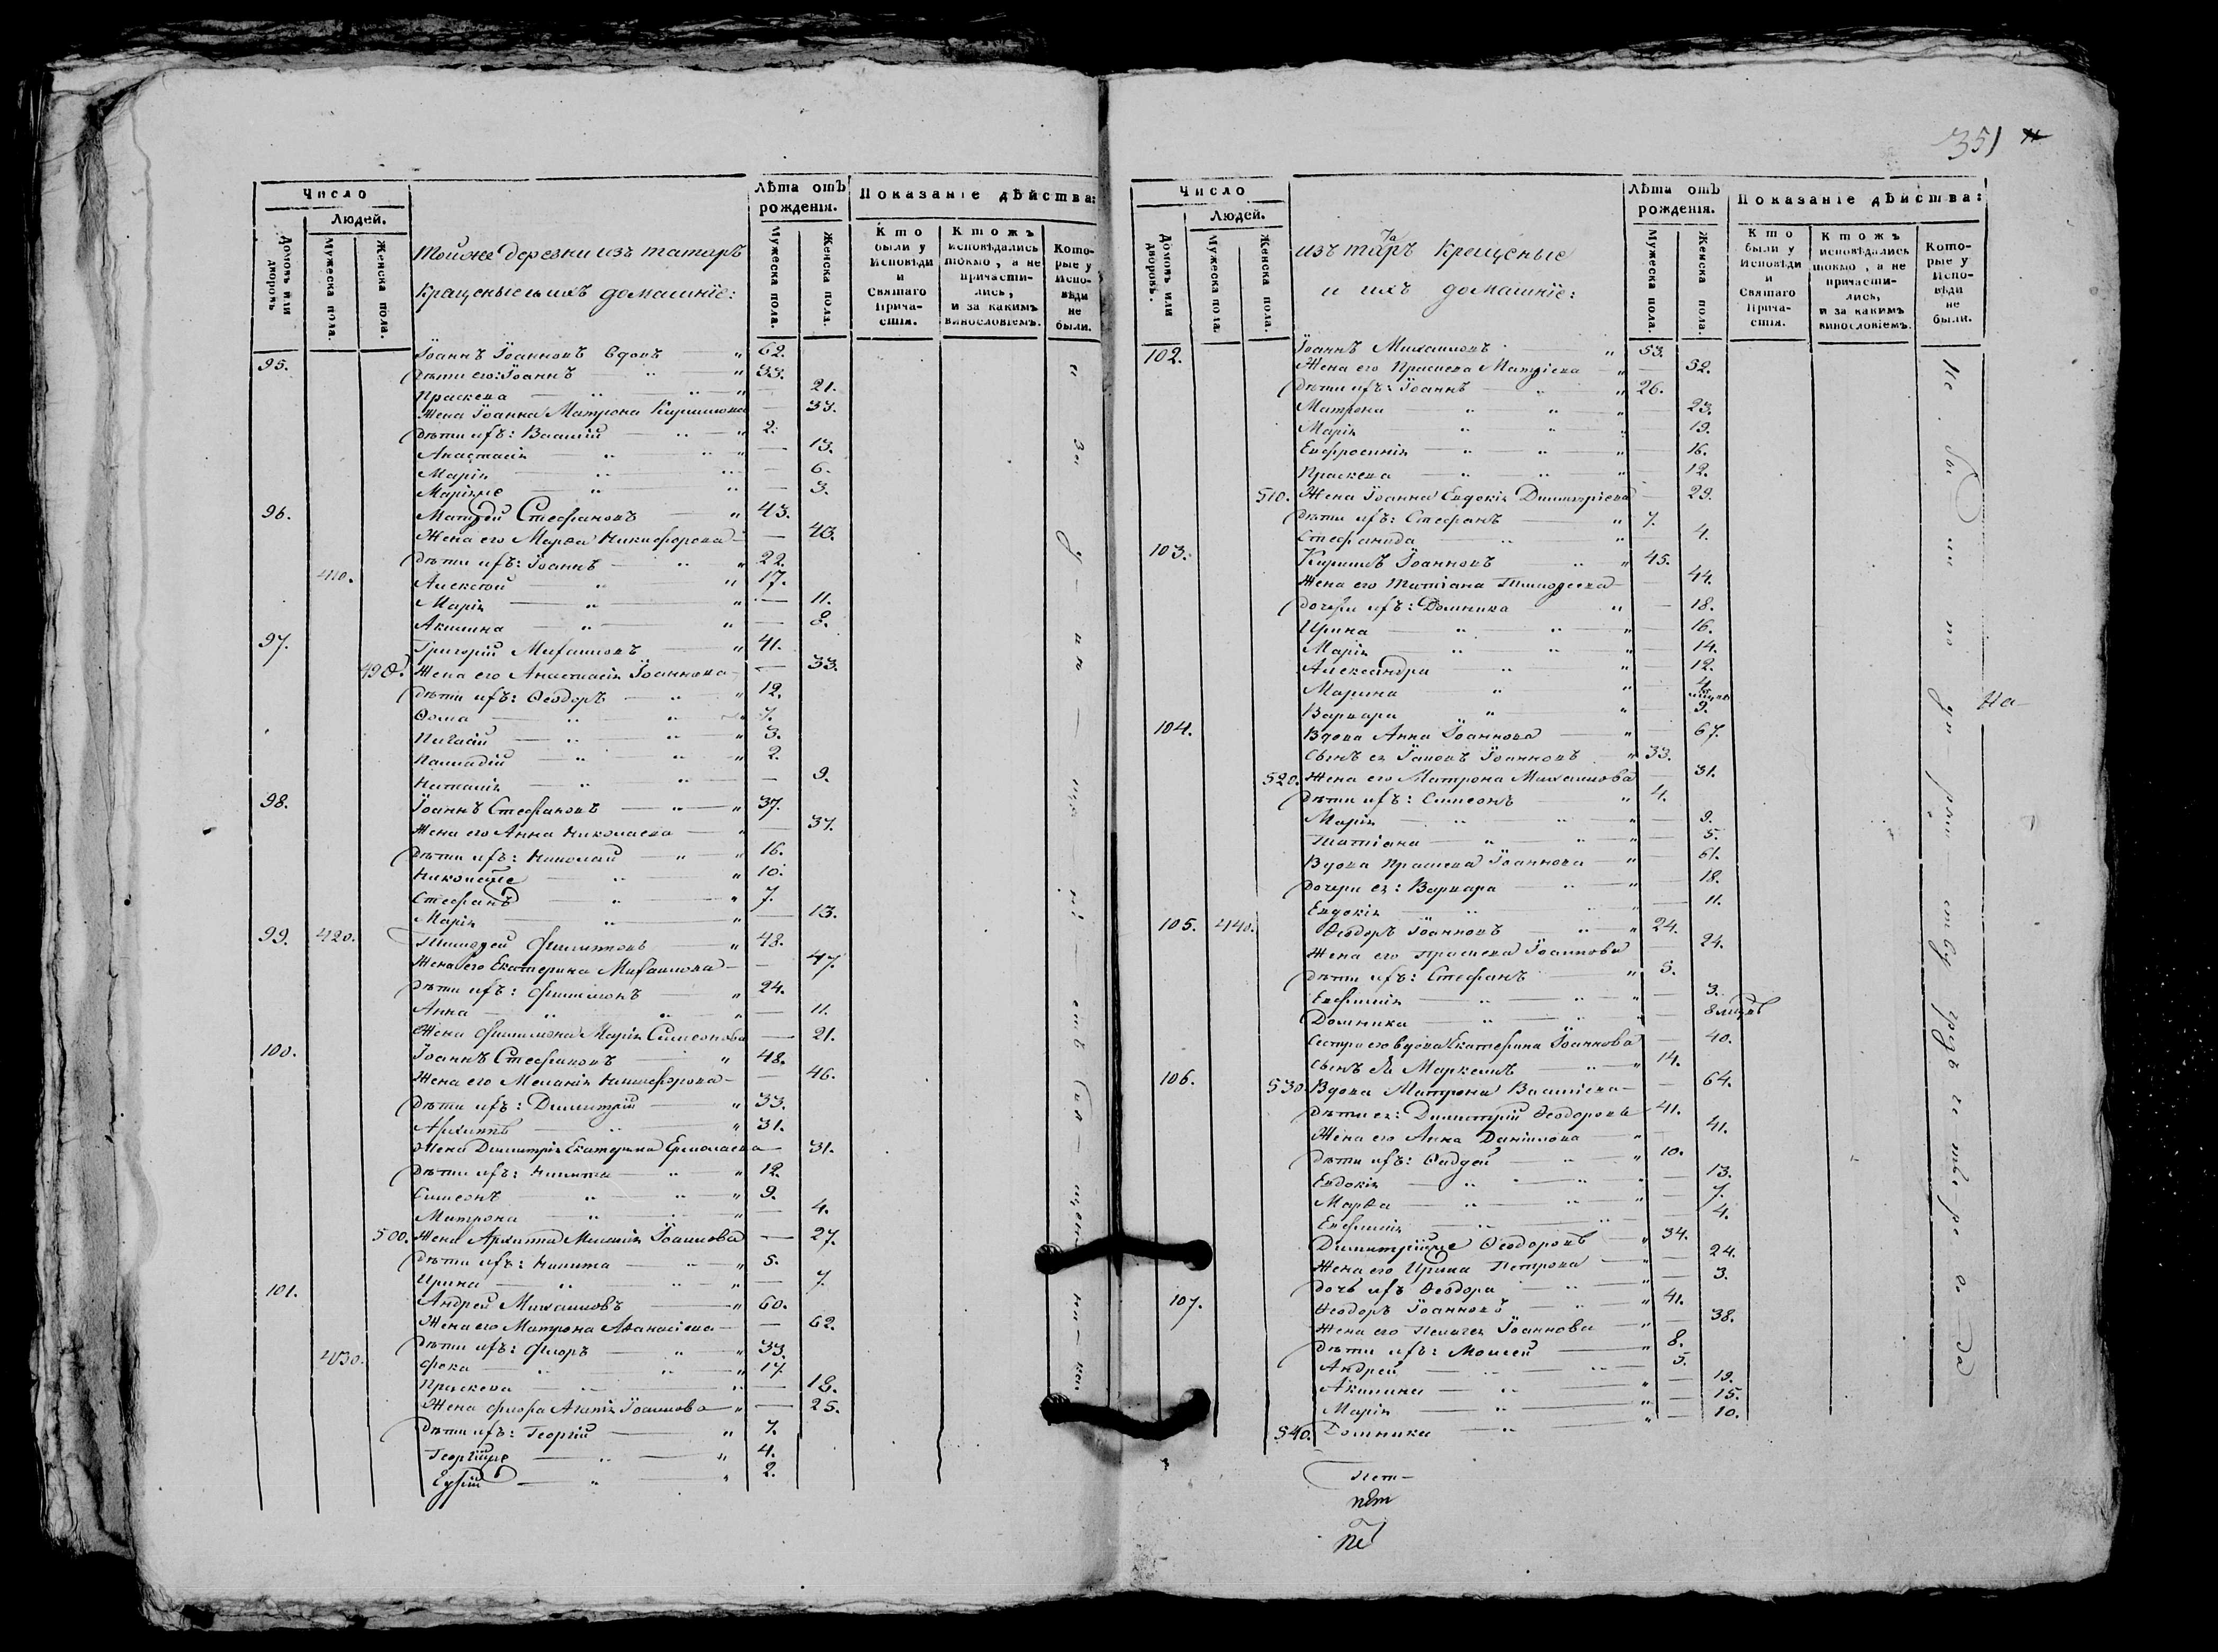 Число
Людей.
Домовъ или дворовъ
Мужеска пола.
Женска пола.
Тойже деревни изъ татаръ
крещеные и ихъ домашніе:
Лѣта отъ рожденія.
Мужеска пола.
Женска пола.
Показаніе дѣйства:
Кто были у Исповѣди и Святаго Прича-стія.
Ктожъ исповѣдались токмо, а не причасти-лись, и за какимъ винословіемъ.
Кото-рые у Испо-вѣди не были.
95. Іоаннъ Іоанновъ вдовъ 62.
Дѣти его: Іоаннъ 33.
Праскева — 21.
Жена Іоанна Матрона Кирилова — 33.
Дѣти ихъ: Василій 2.
Анастасія — 13.
Марія — 6.
Маріяже — 3.
96. Матѳей Стефановъ 43.
Жена его Марѳа Никифорова — 40.
Дѣти ихъ: Іоаннъ 22.
410. Алексѣй 17.
Марія — 11.
Акилина — 8.
97. Григорій Михаиловъ 41.
490. Жена его Анастасія Іоаннова — 33.
Дѣти ихъ: Ѳеодоръ 12.
Ѳома 7.
3.
Палладій 2.
Наталія — 9.
98. Іоаннъ Стефановъ 37.
Жена его Анна Николаева — 37.
Дѣти ихъ: Николай 16.
Николайже 10.
Стефанъ 7.
Марія — 13.
99. 420. Тимоѳей Филиповъ 48.
Жена его Екатерина Михаилова — 47.
Дѣти ихъ: Филимонъ 24.
Анна — 11.
Жена Филимона Марія Симеонова — 21.
100. Іоаннъ Стефановъ 48.
Жена его Меланія Никифорова — 46.
Дѣти ихъ: Димитрій 33.
Архиппъ 31.
Жена Димитрія Екатерина Ермолаева — 31.
Дѣти ихъ: Никита 12.
Симеонъ 9.
Матрона — 4.
500. Жена Архиппа Меланія Іоаннова — 27.
Дѣти ихъ: Никита 5.
Ирина — 7.
101. Андрей Михаиловъ 60.
Жена его Матрона Аѳанасіева — 62.
Дѣти ихъ: Флоръ 33.
430. Фока 17.
Праскева — 18.
Жена Флора Агапія Іоаннова — 25.
Дѣти ихъ: Георгій 7.
Георгійже 4.
2.
351
Число
Людей.
Домовъ или дворовъ.
Мужеска пола.
Женска пола.
изъ татаръ крещеные
и ихъ домашніе:
Лѣта отъ рожденія.
Мужеска пола.
Женска пола.
Показаніе дѣйства:
Кто были у Исповѣди и Святаго Прича-стія.
Ктожъ исповѣдались токмо, а не причасти-лись, и за какимъ винословіемъ.
Кото-рые у Испо-вѣди не были.
102. Іоаннъ Михаиловъ 53.
Жена его Праскева Матѳіева — 52.
Дѣти ихъ: Іоаннъ 26.
Матрона — 23.
Марія — 19.
Евфросинія — 16.
Праскева — 12.
510. Жена Іоанна Евдокія Димитріева — 29.
Дѣти ихъ: Стефанъ 7.
Стефанида — 4.
103. Кирилъ Іоанновъ 45.
Жена его Татіана Тимоѳеева — 44.
Дочери ихъ: Домника — 18.
Ирина — 16.
Марія — 14.
Александра — 12.
Марина — 4.
Варвара — 9.
104. Вдова Анна Іоаннова — 67.
Сынъ ея Іаковъ Іоанновъ 33.
520. Жена его Матрона Михаилова — 31.
Дѣти ихъ: Симеонъ 4.
Марія — 9.
Татіана — 5.
Вдова Праскева Іоаннова — 61.
Дочери ея: Варвара — 18.
Евдокія — 11.
105. 440. Ѳеодоръ Іоанновъ 24.
Жена его Праскева Іоаннова — 24.
Дѣти ихъ: Стефанъ 5.
Евфимія — 3.
Домника — 8 мцовъ
Сестра его вдова Екатерина Іоаннова — 40.
Сынъ ея Маркелъ 14.
106. 530. Вдова Матрона Василіева — 64.
Дѣти ея: Димитрій Ѳеодоровъ 41.
Жена его Анна Даніилова — 41.
Дѣти ихъ: Ѳаддей 10.
Евдокія — 13.
Марѳа — 7.
Евфимія — 4.
Димитрійже Ѳеодоровъ 34.
Жена его Ирина Петрова — 24.
Дочь ихъ Ѳеодора — 3.
107. Ѳеодоръ Іоанновъ 41.
Жена его Пелагея Іоаннова — 38.
Дѣти ихъ: Моисей 8.
Андрей 5.
Акилина — 19.
Марія — 15.
540. Домника — 10.
На-